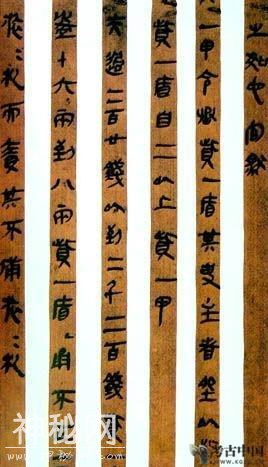 之如它官然
一甲令丞貲一盾其吏主者坐以貲
貲一盾自二以上貲一甲
過二百廿錢以到二千二百錢
盈十六兩到八兩貲一盾甬不
旅=札而責其不備旅=札
神秘网
考古中国